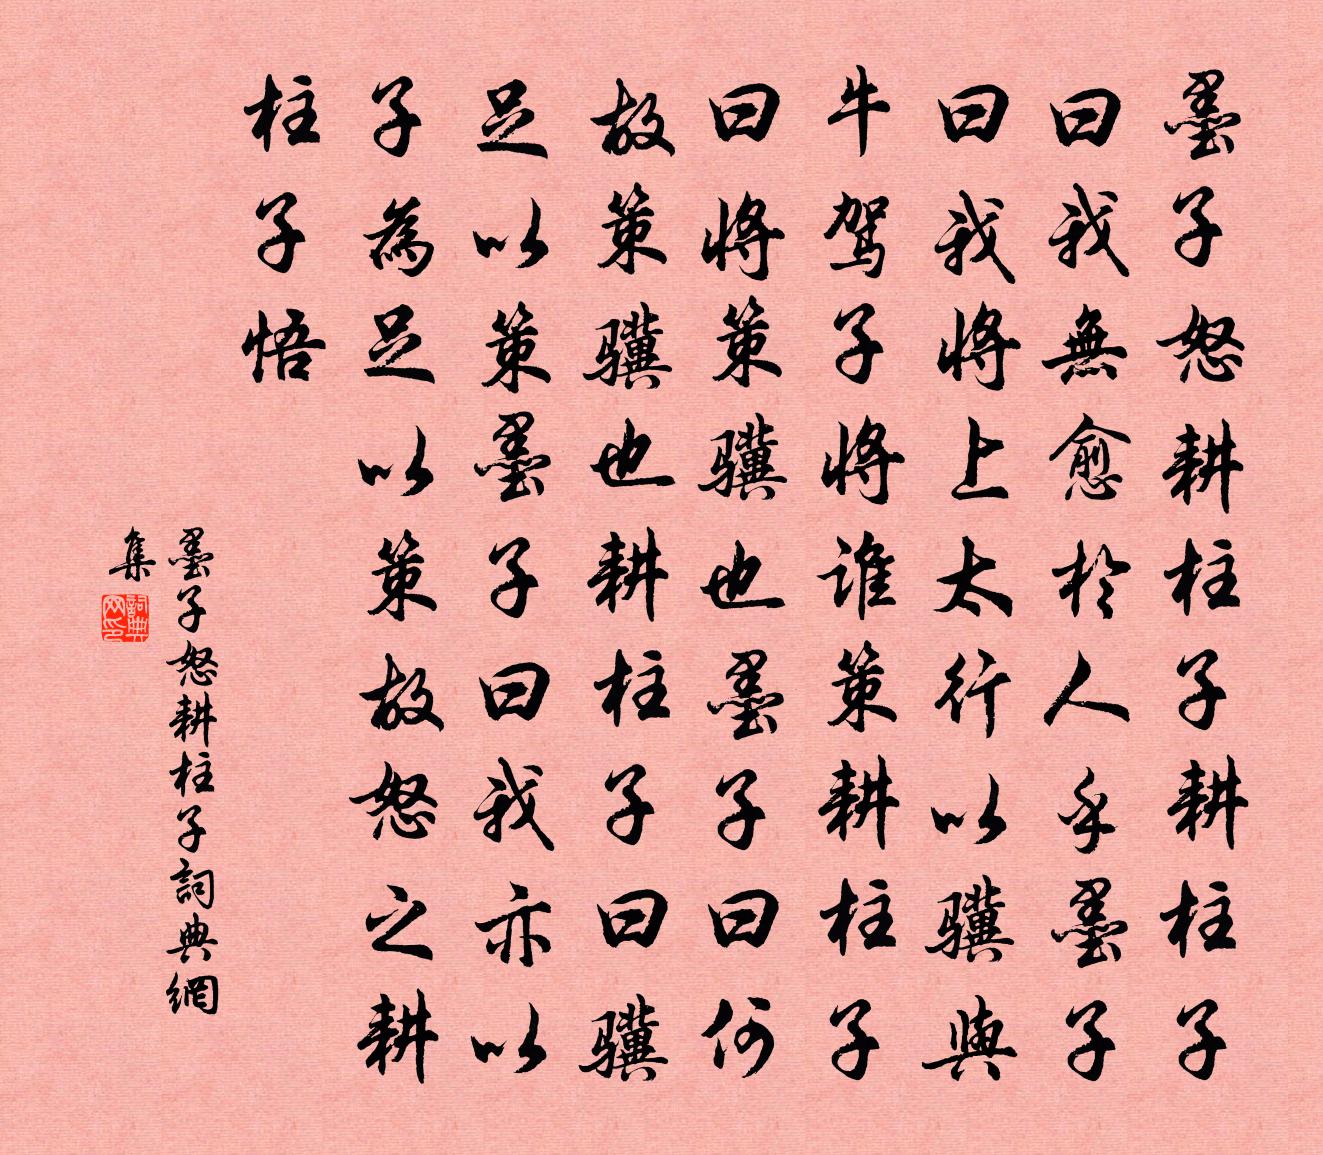 墨子怒耕柱子耕柱子
曰我無愈於人乎墨子
曰我將上太行以骥與
牛驾子將谁策耕柱子
曰將策骥也墨子曰何
故策骥也耕柱子曰骥
足以策墨子曰我亦以
子為足以策故怒之耕
柱子悟
墨子怒耕柱子詞典網
集
詞典
网印